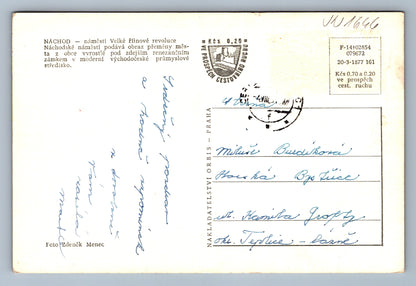 NÁCHOD — náměstí Velké říjnové revoluce
Náchodské náměstí podává obraz přeměny měs-
ta z obce vyrostlé pod zdejším renezančním
zámkem v moderní východočeské průmyslové
středisko.
Kčs 0,20
VE PROSPĚCH CESTOVNÍHO RUCHU
F-14*02854
079673
20-3-1877 161
Kčs 0,70 a 0,20
ve prospěch
cest. ruchu
Srdečný pozdrav
a hodně vzpomínek
z dovolené
Vám
zasílá
NAKLADATELSTVÍ ORBIS - PRAHA
Miluše
Horská Bystřice
ul.
okr. Teplice - lázně
Foto Zdeněk Menec